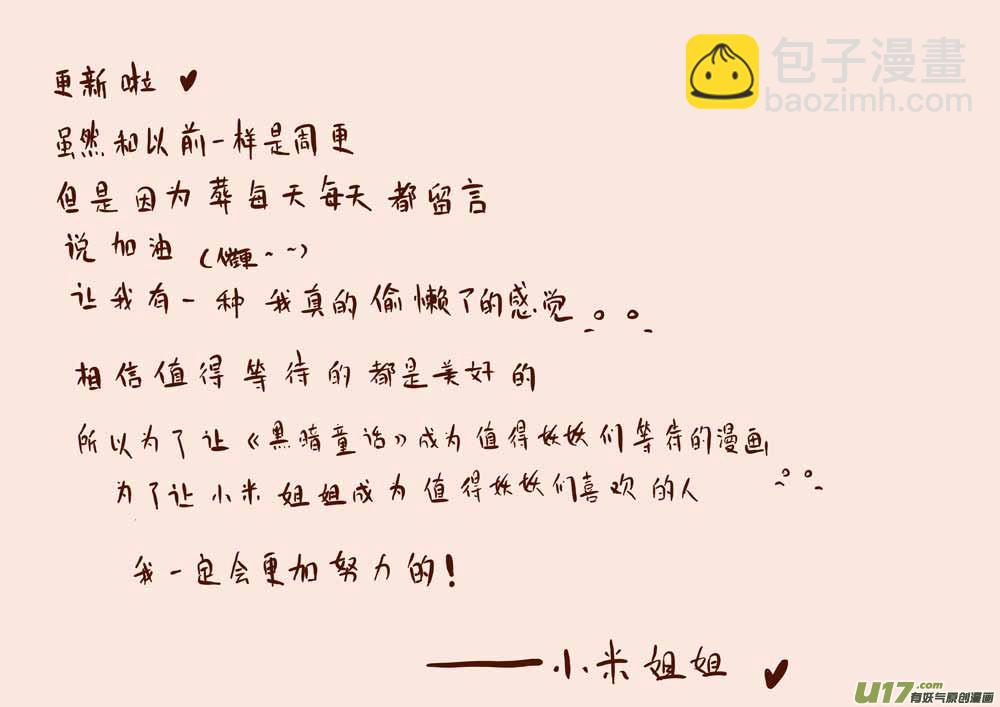 包子漫畫
baozimh.com
更新啦♥
虽然和以前一样是周更
但是因为葬每天每天都留言
说加油（催更~~）
让我有一种我真的偷懒了的感觉
相信值得等待的都是美好的
所以为了让《黑暗童话》成为值得妖妖们等待的漫画
为了让小米姐姐成为值得妖妖们喜欢的人
我一定会更加努力的！
——小米姐姐♥
U17.com
有妖气原创漫画